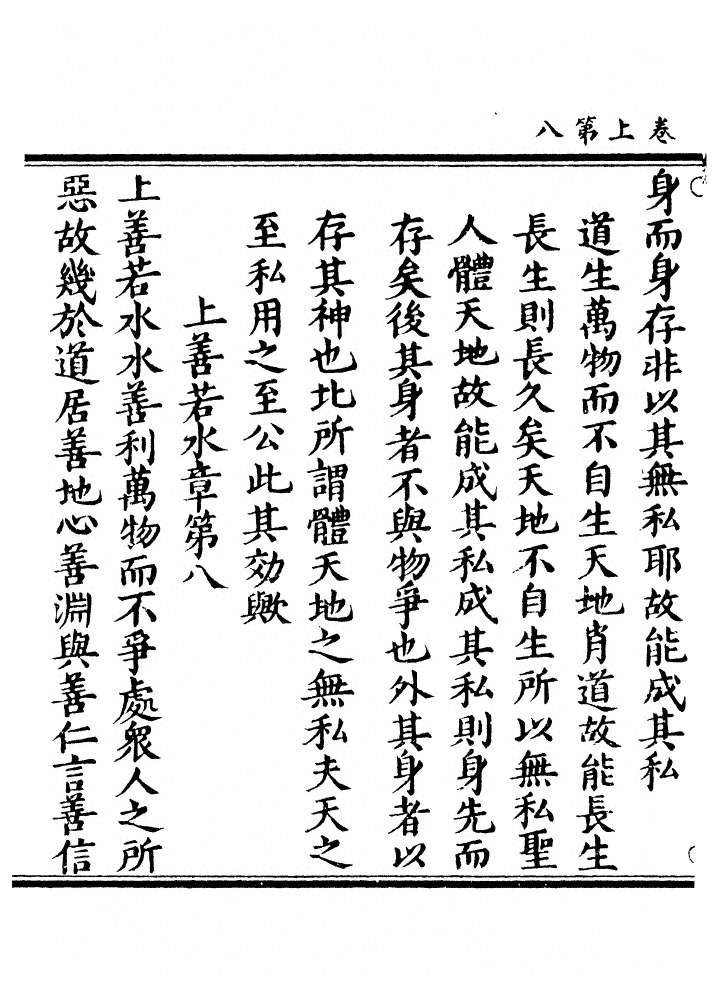 卷上第八
身而身存非以其無私耶故能成其私
道生萬物而不自生天地肖道故能長生
長生則長久矣天地不自生所以無私聖
人體天地故能成其私成其私則身先而
存矣後其身者不與物爭也外其身者以
存其神也比所謂體天地之無私夫天之
至私用之至公此其効歟
上善若水章第八
上善若水水善利萬物而不爭處衆人之所
惡故幾於道居善地心善淵與善仁言善信